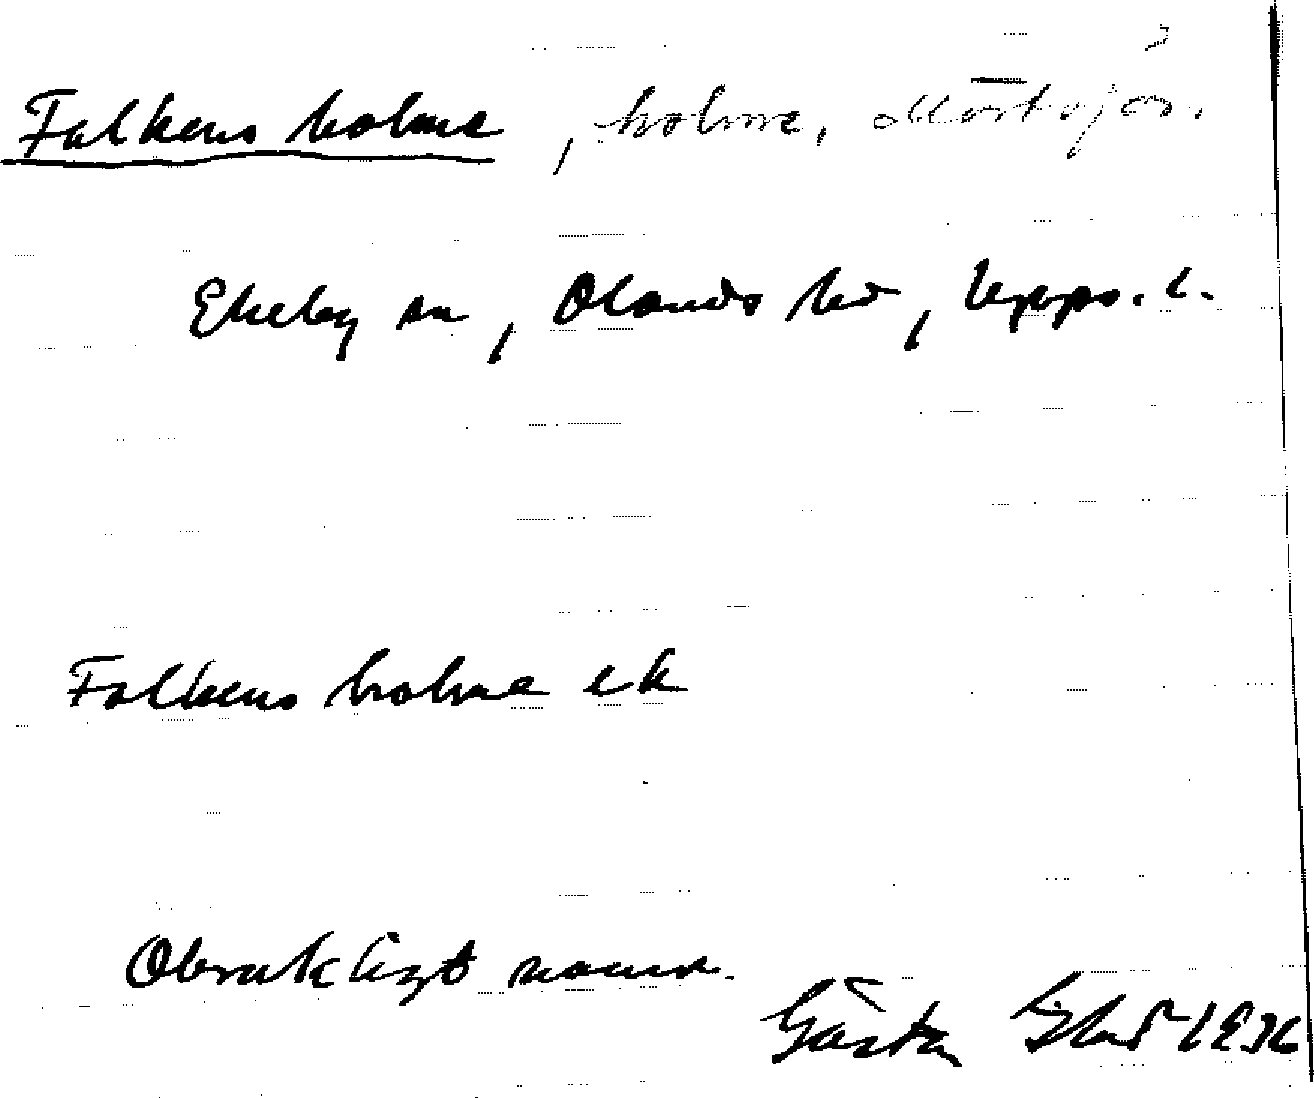 Falkens holme, holme, Mörtsjön.
Ekeby sn, Olands hd, Upps. l.
Falkens holme ek
Obrukligt namn.
Gösta 1936